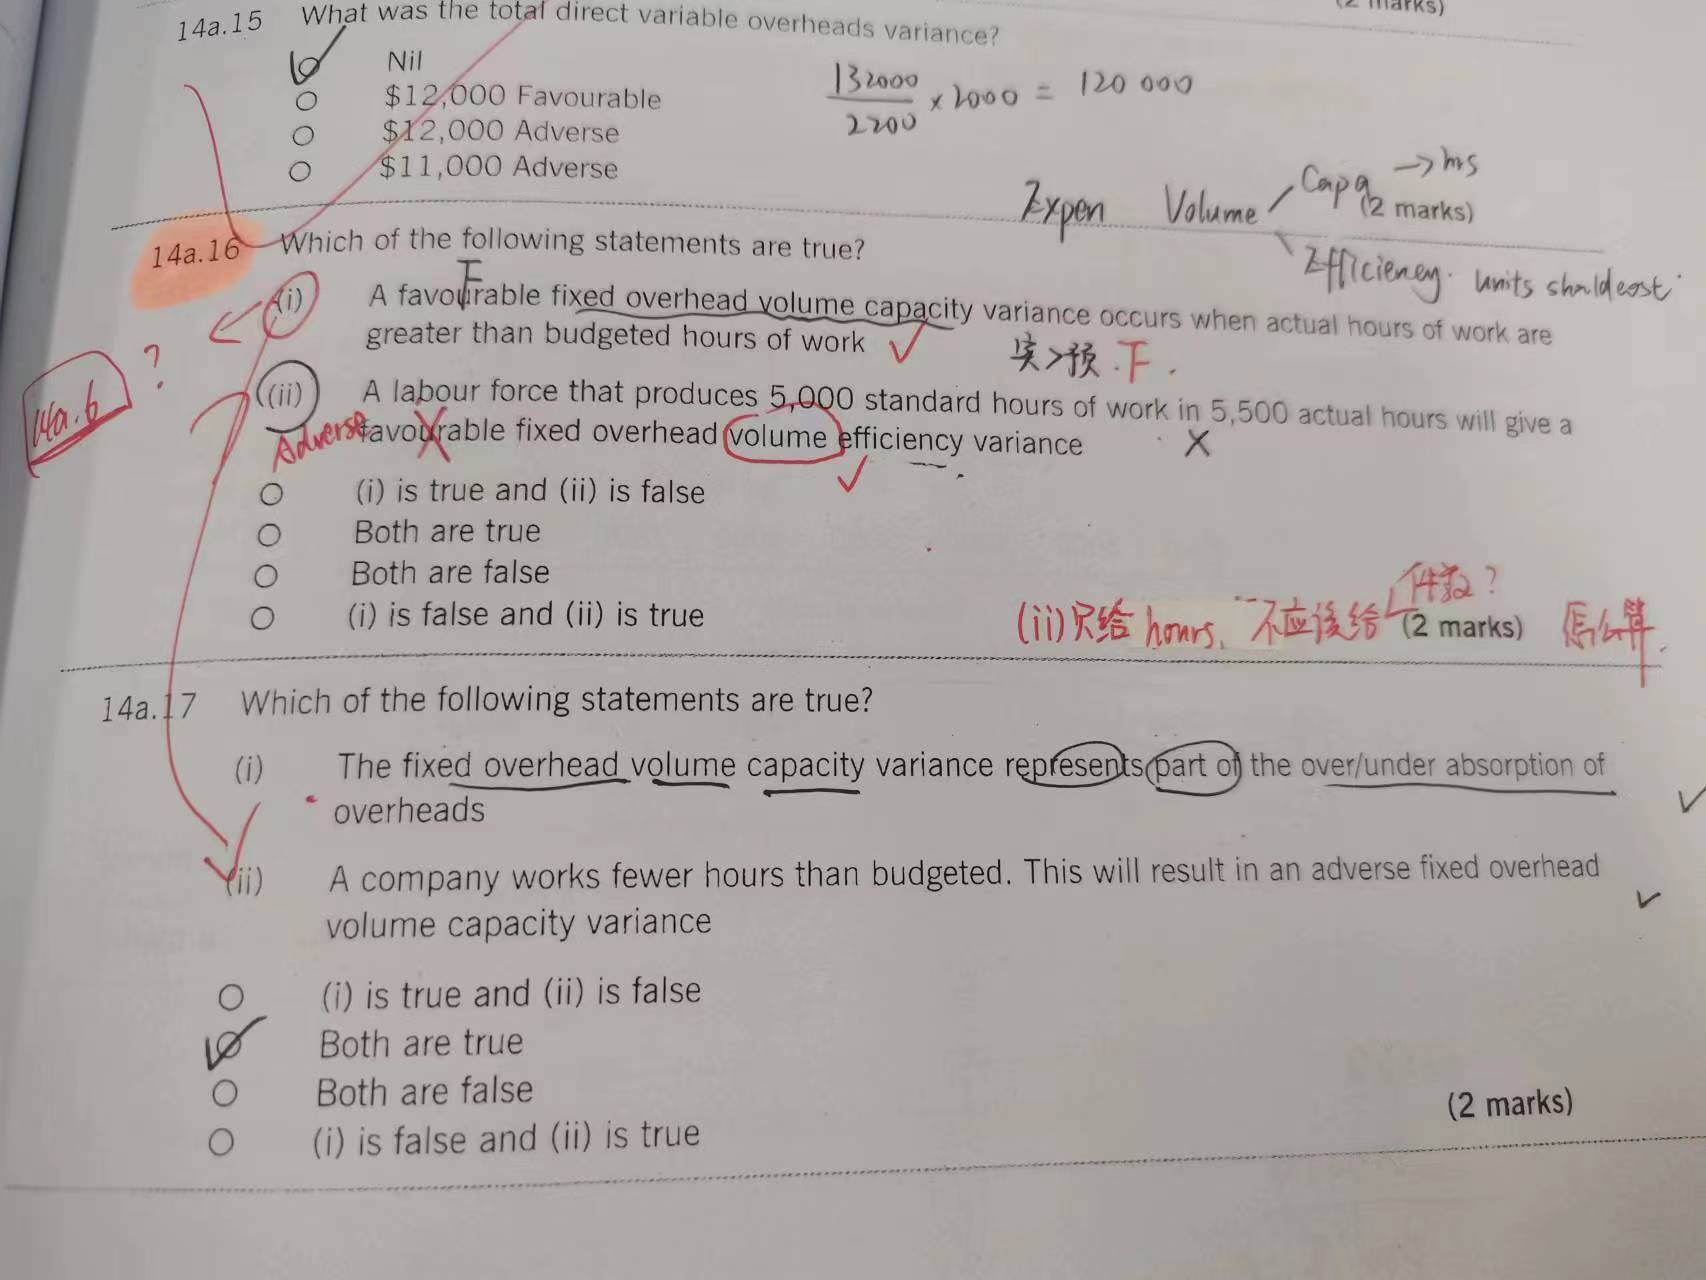 (2 marks)
14a.15 What was the total direct variable overheads variance?
Nil
$12,000 Favourable
$12,000 Adverse
$11,000 Adverse
132000/2200 × 2000 = 120 000
Expen Volume Capa → hrs
(2 marks)
Efficieney. units should cost
14a.16 Which of the following statements are true?
F
(i) A favourable fixed overhead volume capacity variance occurs when actual hours of work are
greater than budgeted hours of work
实>预. F.
?
14a.6
(ii) A labour force that produces 5,000 standard hours of work in 5,500 actual hours will give a
Adverse favourable fixed overhead volume efficiency variance
(i) is true and (ii) is false
Both are true
Both are false
(i) is false and (ii) is true
(2 marks)
(ii)只给 hours, 不应该给件数? 怎么算.
14a.17 Which of the following statements are true?
(i) The fixed overhead volume capacity variance represents part of the over/under absorption of
overheads
(ii) A company works fewer hours than budgeted. This will result in an adverse fixed overhead
volume capacity variance
(i) is true and (ii) is false
Both are true
Both are false
(i) is false and (ii) is true
(2 marks)